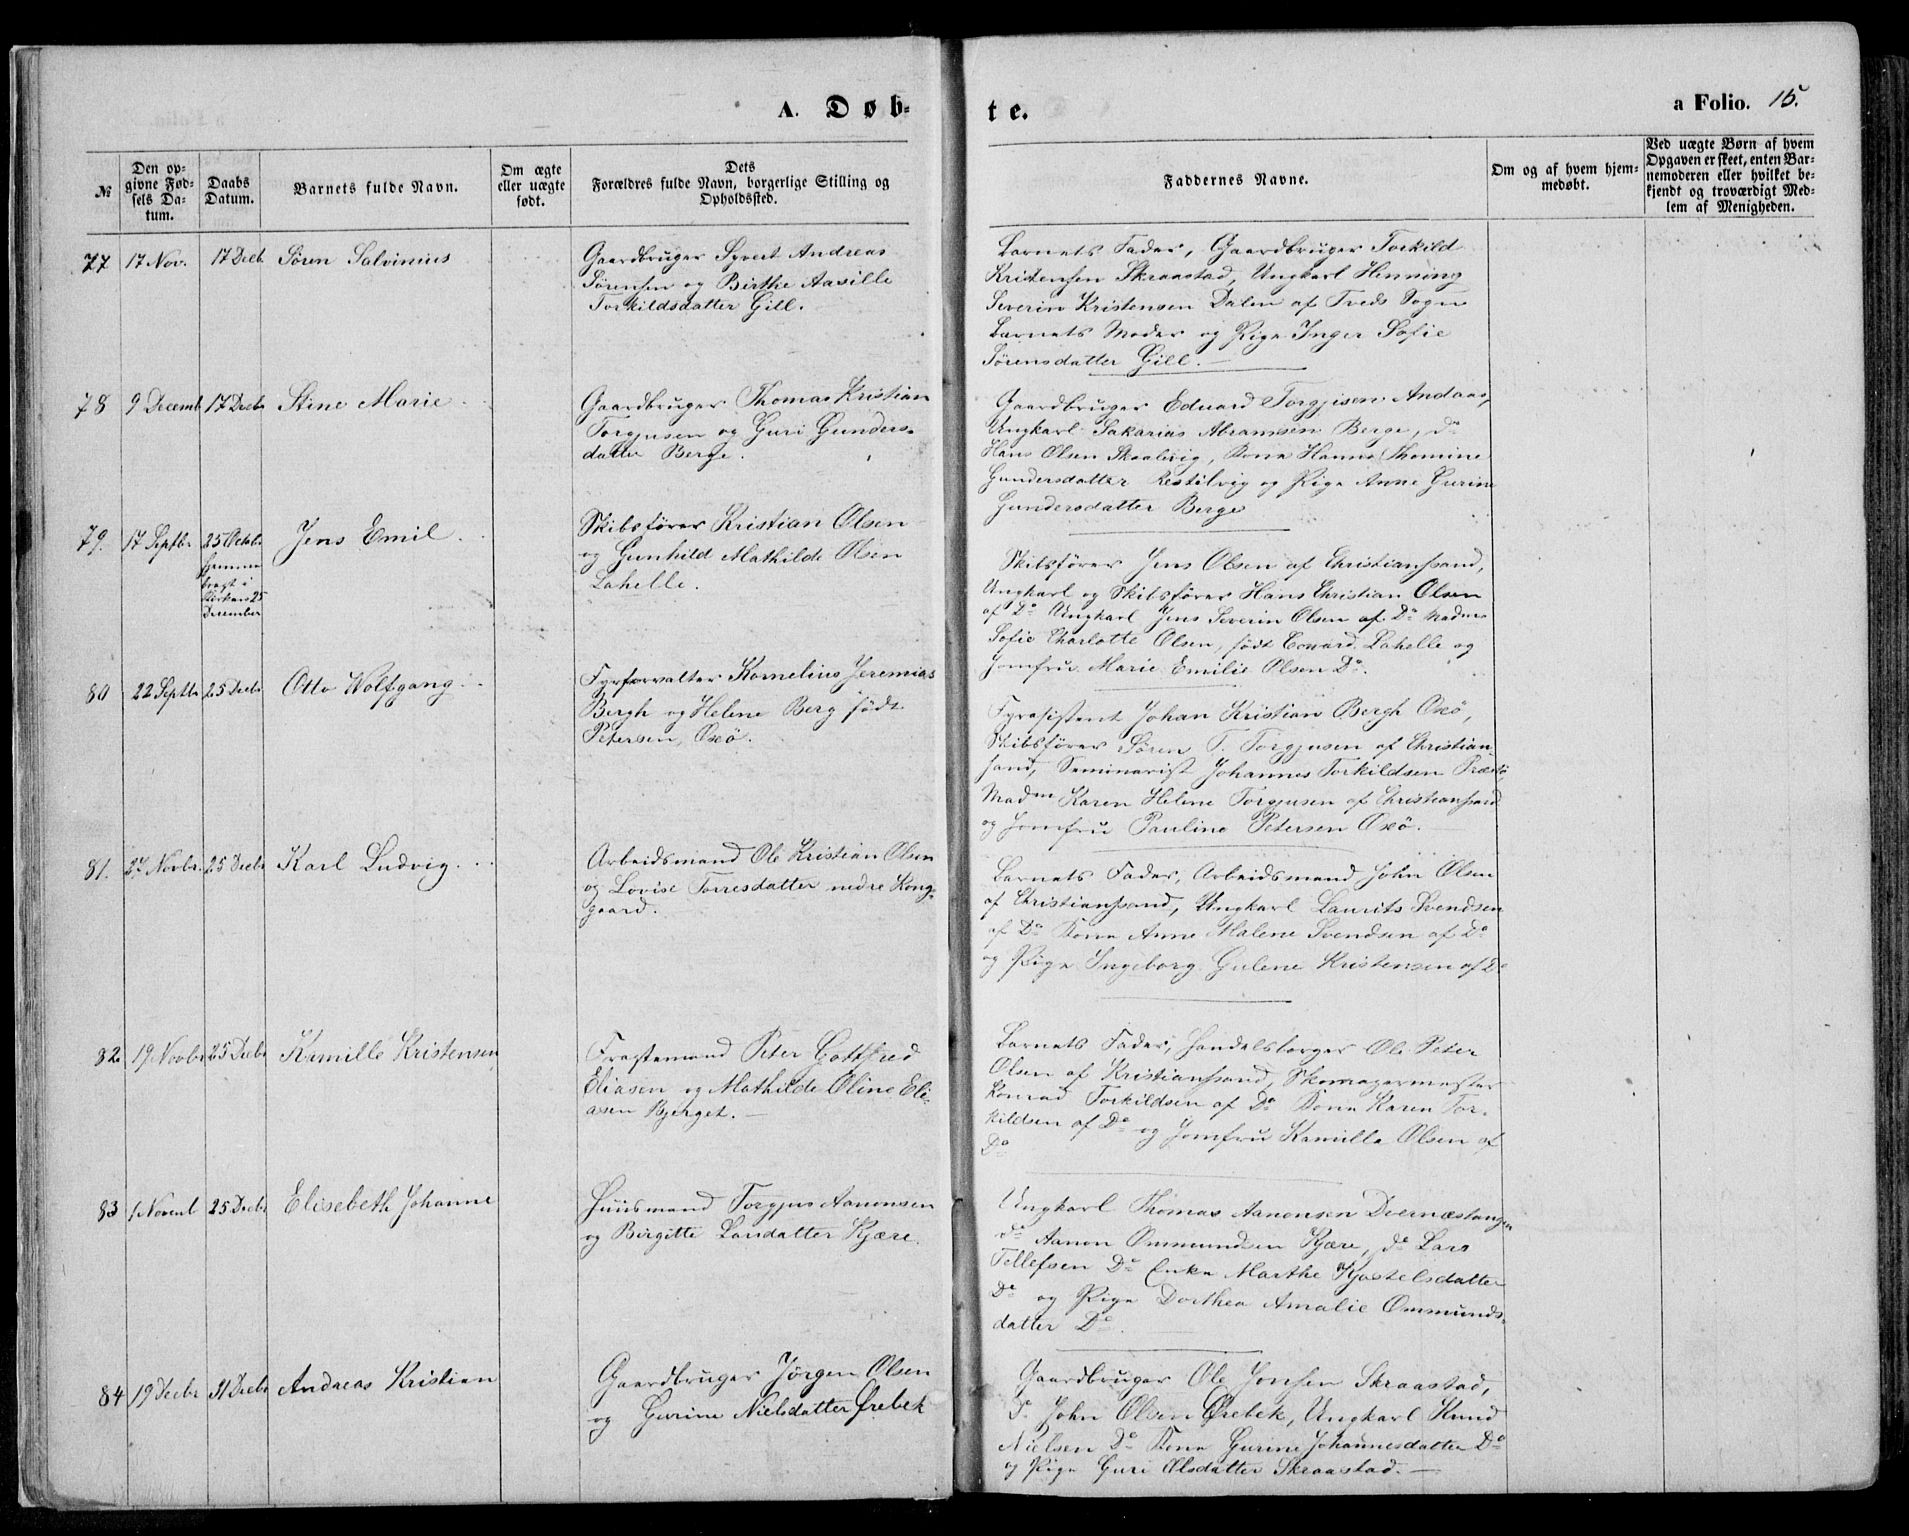 A. Døb-
te.
a Folio. 15.
№
Den op-
givne Fød-
sels Da-
tum.
Daabs
Datum.
Barnets fulde Navn.
Om ægte
eller uægte
født.
Dets
Forældres fulde Navn, borgerlige Stilling og
Opholdssted.
Faddernes Navne.
Om og af hvem hjem-
medøbt.
Ved uægte Børn af hvem
Opgaven er skeet, enten Bar-
nemoderen eller hvilket be-
kjendt og troværdigt Med-
lem af Menigheden.
77 17 Nov. 17 Decb. Søren Salvinius
Gaardbruger Syvert Andreas
Sørensen og Birthe Aasille
Torkildsdatter Gill.
Barnets Fader, Gaardbruger Torkild
Kristensen Skraastad, Ungkarl Henning
Severin Kristensen Dalen af Treds Sogn
Barnets Moder og Pige Inger Sofie
Sørensdatter Gill.
78 9 Decemb 17 Decbr Stine Marie
Gaardbruger Thomas Kristian
Torgjusen og Guri Gunders-
datter Berge.
Gaardbruger Eduard Torgjisen Andaas,
Ungkarl Sakarias Abramsen Berge, do
Hans Olsen Skaalevig, Kona Hanna Thomine
Gundersdatter Restilvig og Pige Anne Gurine
Gundersdatter Berge
79. 17 Septbr 25 Octbr Jens Emil
hjemme
bragt i
Kirken 25
December
Skibsfører Kristian Olsen
og Gunhild Mathilde Olsen
Lahelle.
Skibsfører Jens Olsen af Christianssand,
Ungkarl og Skibsfører Hans Christian Olsen
af Do Ungkarl Jens Severin Olsen af Do Madme
Sofie Charlotte Olsen, født Lahelle og
Jomfru Marie Emilie Olsen Do.
80 22 Septbr 25 Decbr Otto Wolfgang
Fyrforvalter Kornelius Jeremias
Bergh og Helene Berg født
Petersen, Oxö.
Fyrasistent Johan Kristian Bergh Oxö,
Skibsfører Søren T. Torgjusen af Christian-
sand, Seminarist Johannes Torkildsen Præstö,
Madm Karen Helene Torgjusen af Christianssand
og Jomfru Pauline Petersen Oxö.
81. 27 Novbr. 25 Decbr Karl Ludvig
Arbeidsmand Ole Kristian Olsen
og Lovise Torresdatter nedre Kong-
gaard.
Barnets Fader, Arbeidsmand John Olsen
af Christianssand, Ungkarl Laurits Svendsen
af Do Kona Anne Malene Svendsen af Do
og Pige Ingeborg Gulene Kristensen af Do
82. 19 Novbr 25 Decbr Kamille Kristensen
Fragtemand Peter Gottfred
Eliasen og Mathilde Oline Eli-
asen Bjerget.
Barnets Fader, Handelsborger Ole Peter
Olsen af Kristianssand, Skomagermester
Konrad Torkildsen af Do Kona Karen Tor-
kildsen af Do og Jomfru Kamilla Olsen af
Do
83 1 Novemb 25 Decbr Elisebeth Johanne
Huusmand Torgjus Aanonsen
og Birgitte Larsdatter Kjære.
Ungkarl Thomas Aanonsen Dvernæstangen
do Aanon Ommundsen Kjære, do Lars
Tellefsen Do Enke Marthe Kjøstelsdatter
Do og Pige Dorthea Amalie Ommunds-
datter Do.
84 19 Decbr 31 Decbr Andreas Kristian
Gaardbruger Jørgen Olsen
og Gurine Nielsdatter Ørebek
Gaardbruger Ole Jonsen Skraastad,
Do John Olsen Ørebek, Ungkarl Knud
Nielsen Do Kona Gurine Johannesdatter Do
og Pige Guri Olsdatter Skraastad.